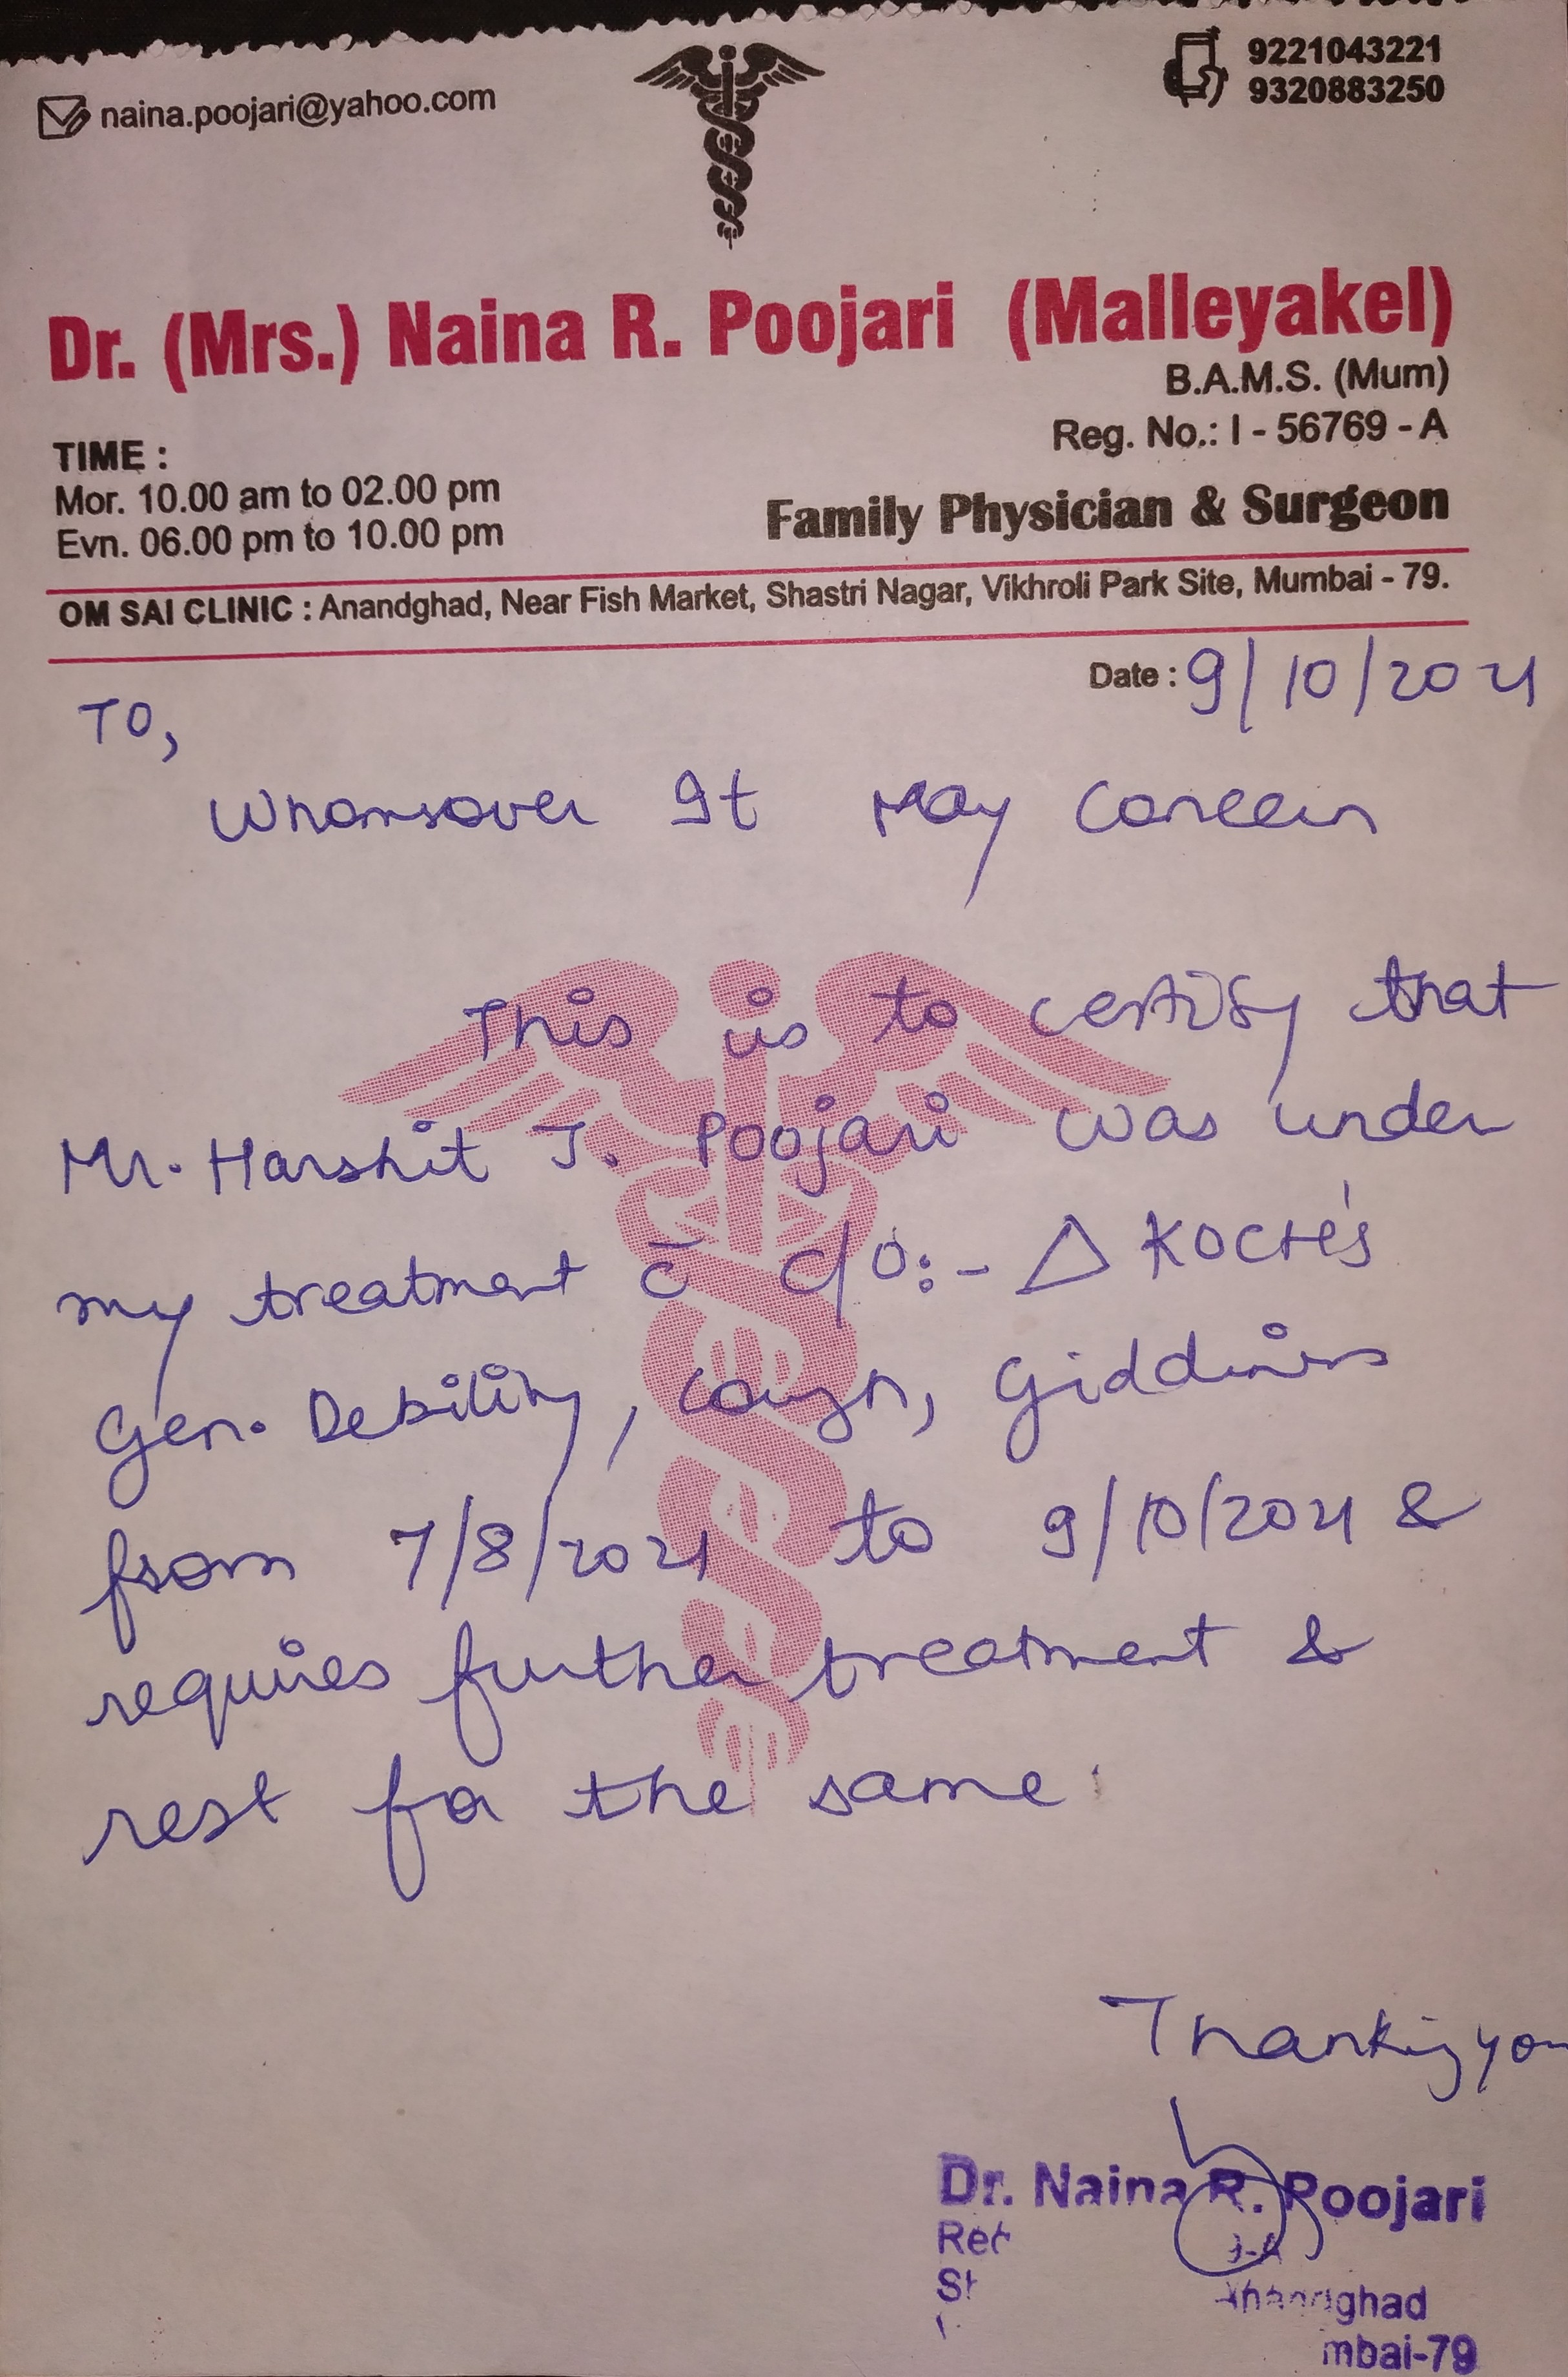 naina.poojari@yahoo.com
9221043221
9320883250
Dr. (Mrs.) Naina R. Poojari (Malleyakel)
B.A.M.S. (Mum)
Reg. No.: I - 56769 - A
TIME :
Mor. 10.00 am to 02.00 pm
Evn. 06.00 pm to 10.00 pm
Family Physician & Surgeon
OM SAI CLINIC : Anandghad, Near Fish Market, Shastri Nagar, Vikhroli Park Site, Mumbai - 79.
Date : 9/10/2021
TO,
Whomsover It May Concern
This is to certify that
Mr. Harshit J. Poojari was under
my treatment c̄ c/o:- Δ KOCH's
Gen. Debility, Cough, Giddiness
from 7/8/2021 to 9/10/2021 &
requires further treatment &
rest for the same.
Thanking you
Dr. Naina R. Poojari
ghad
mbai-79